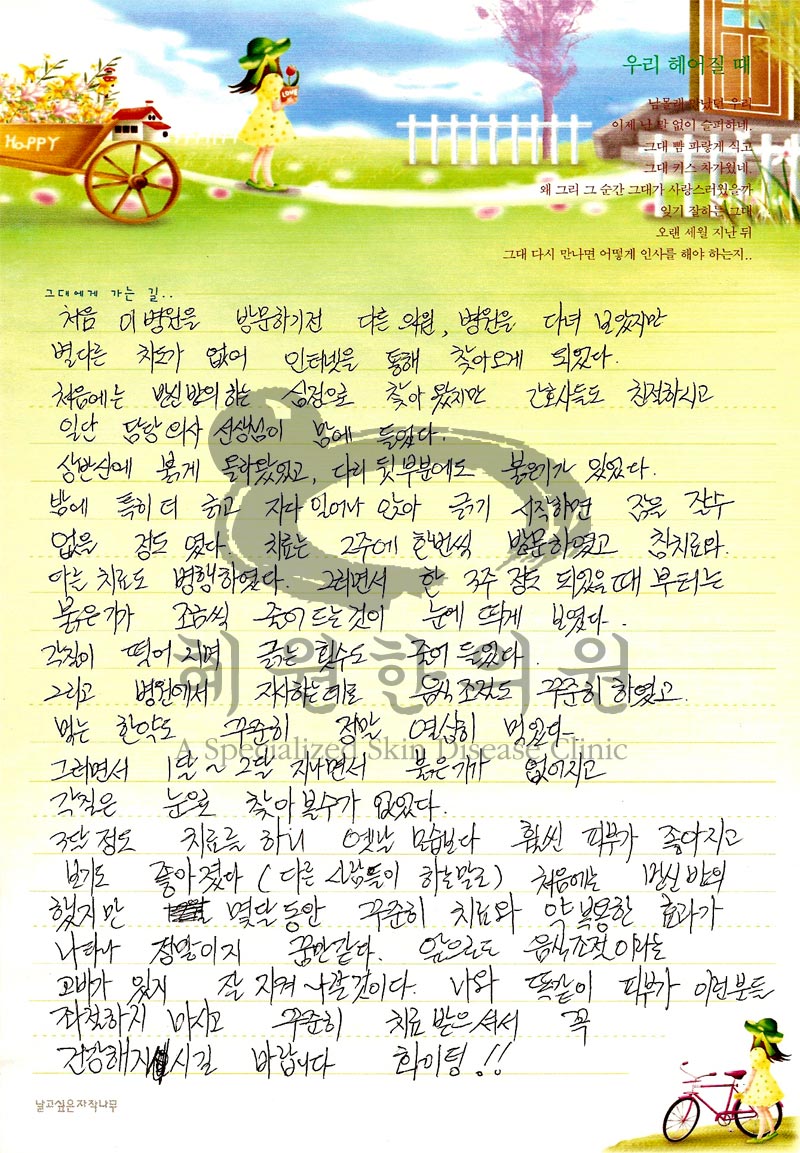 HAPPY
LOVE
우리 헤어질 때
남몰래 만났던 우리
이제 난 말 없이 슬퍼하네.
그대 뺨 파랗게 식고
그대 키스 차가웠네.
왜 그리 그 순간 그대가 사랑스러웠을까
잊기 잘하는 그대
오랜 세월 지난 뒤
그대 다시 만나면 어떻게 인사를 해야 하는지..
그대에게 가는 길..
처음 이 병원을 방문하기전 다른 의원, 병원을 다녀 보았지만
별다른 차도가 없어 인터넷을 통해 찾아오게 되었다.
처음에는 반신반의 하는 심정으로 찾아 왔지만 간호사들도 친절하시고
일단 담당 의사 선생님이 맘에 들었다.
상반신에 붉게 올라왔었고, 다리 뒷부분에도 붉은기가 있었다.
밤에 특히 더 긁고 자다 일어나 앉아 긁기 시작하면 잠을 잘수
없을 정도 였다. 치료는 2주에 한번씩 방문하였고 침치료와.
아는 치료도 병행하였다. 그러면서 한 3주 정도 되었을때 부터는
붉은기가 조금씩 줄어 드는것이 눈에 띄게 보였다.
각질이 떨어 지며 긁는 횟수도 줄어 들었다.
그리고 병원에서 지시하는데로 음식조절도 꾸준히 하였고.
먹는 한약도 꾸준히 정말 열심히 먹었다
그러면서 1달~2달 지나면서 붉은기가 없어지고
각질은 눈으로 찾아 볼수가 없었다.
3달 정도 치료를 하니 옛날 모습보다 훨씬 피부가 좋아지고
보기도 좋아졌다 (다른 사람들이 하는말로) 처음에는 반신 반의
했지만 몇달동안 꾸준히 치료와 약 복용한 효과가
나타나 정말이지 꿈만같다. 앞으로도 음식조절이라는
고비가 있지 잘 지켜 나갈것이다. 나와 똑같이 피부가 이런분들
좌절하지 마시고 꾸준히 치료 받으셔서 꼭
건강해지시길 바랍니다 화이팅!!
혜원한의원
A Specialized Skin Disease Clinic
날고싶은자작나무